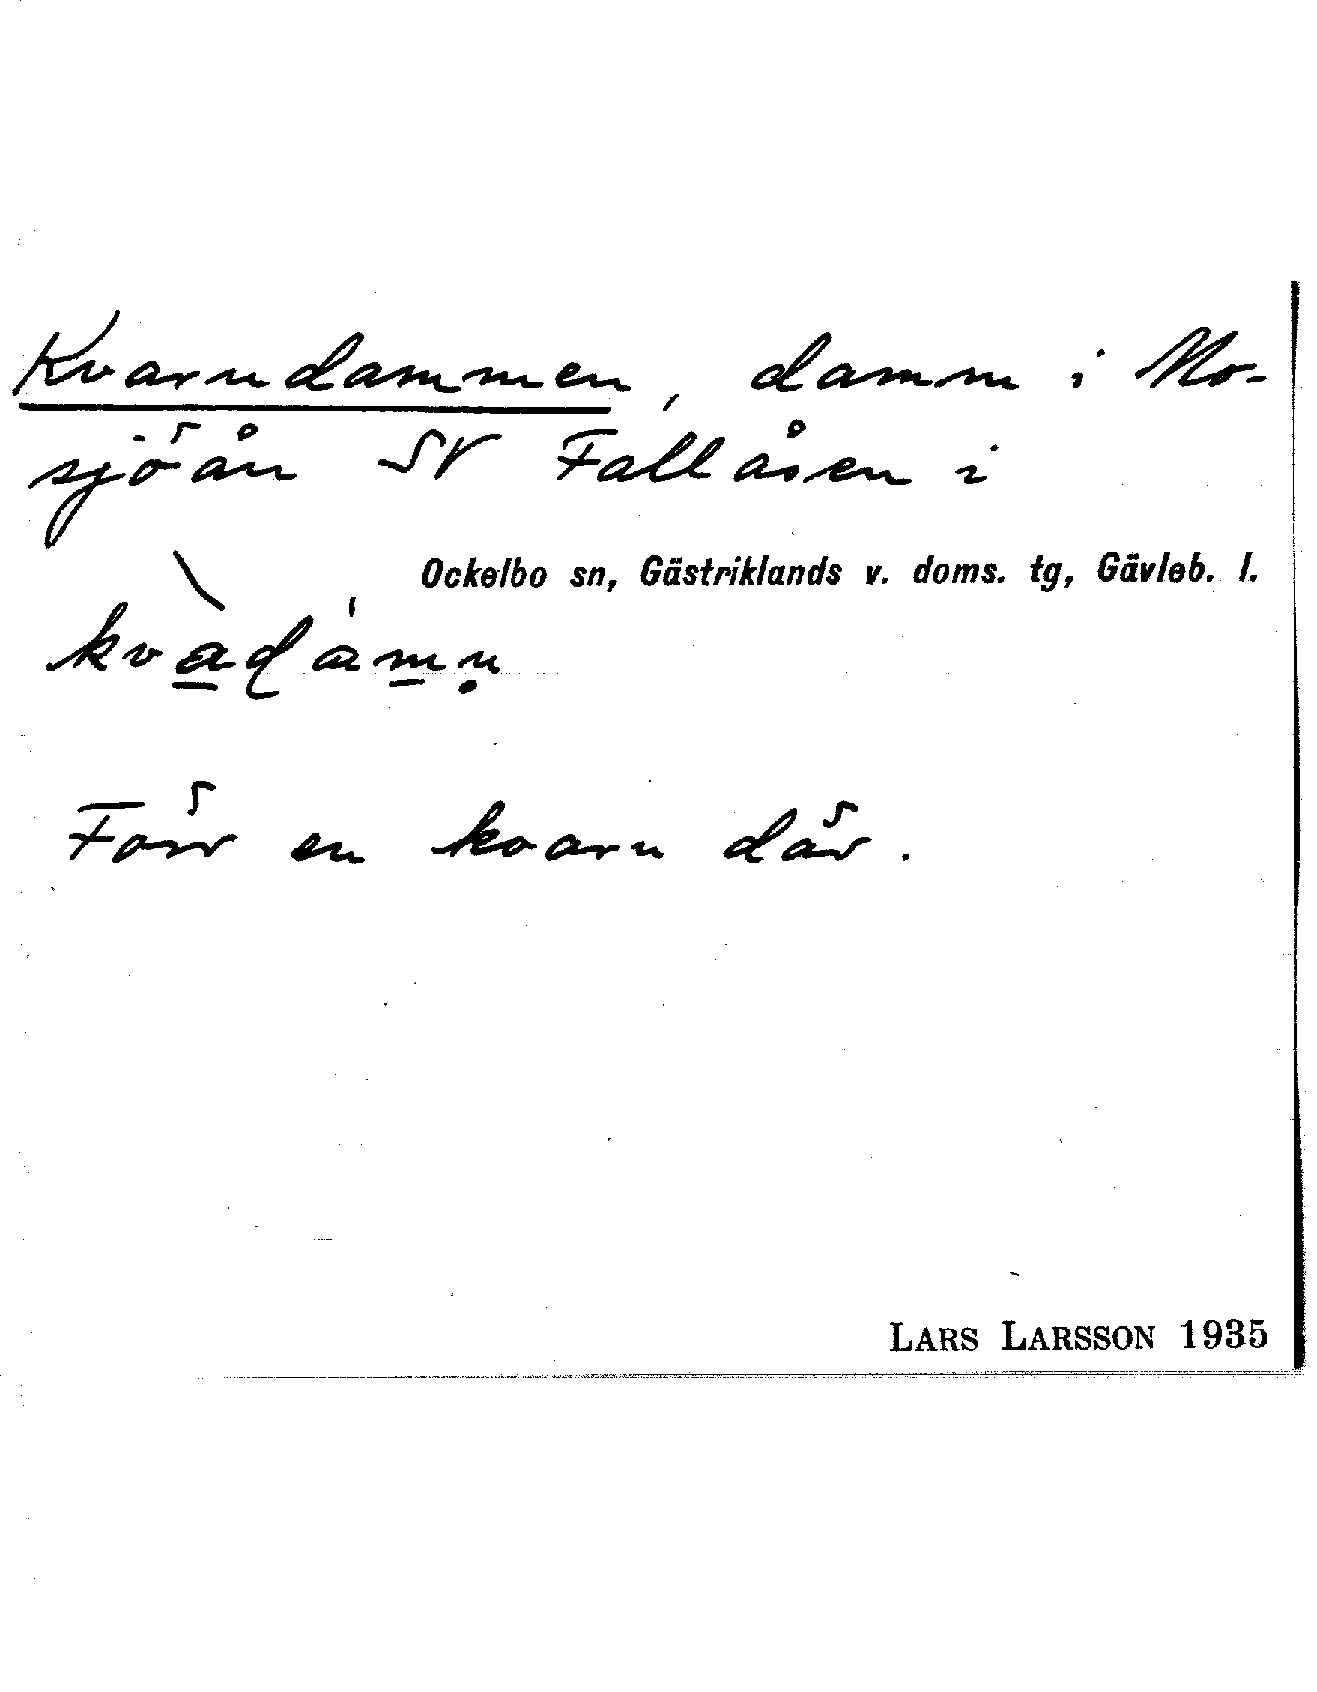 Kvarndammen, damm i Mo-
sjöån SV Fallåsen i
Ockelbo sn, Gästriklands v. doms. tg, Gävleb. l.
Förr en kvarn där.
LARS LARSSON 1935